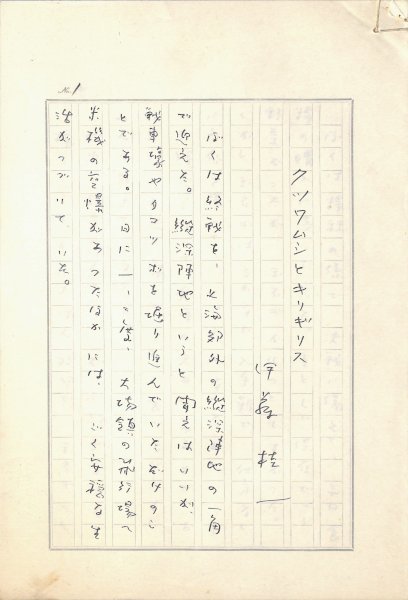 No. 1
クツワムシとキリギリス
伊藤桂一
ぼくは終戦を、上海郊外の縦深陣地の一角
で迎えた。縦深陣地というと聞えはいいが、
戦車壕やタコツボを掘り進んでいただけのこ
とである。日に一、二度、大場鎮の飛行場へ
米機の空爆があったほかには、ごく安穏な生
活がつづいていた。